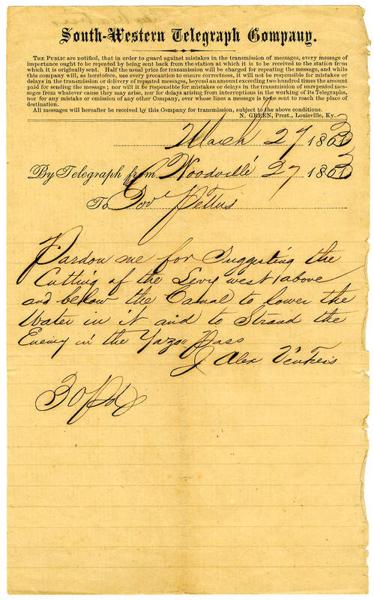 South-Western Telegraph Company.
THE PUBLIC are notified, that in order to guard against mistakes in the transmission of messages, every message of
importance ought to be repeated by being sent back from the station at which it is to be received to the station from
which it is originally sent. Half the usual price for transmission will be charged for repeating the message, and while
this company will, as heretofore, use every precaution to ensure correctness, it will not be responsible for mistakes or
delays in the transmission or delivery of repeated messages, beyond an amount exceeding two hundred times the amount
paid for sending the message; nor will it be responsible for mistakes or delays in the transmission of unrepeated messages
from whatever cause they may arise, nor for delays arising from interruptions in the working of its Telegraphs,
nor for any mistake or omission of any other Company, over whose lines a message is to be sent to reach the place of
destination.
All messages will hereafter be received by this Company for transmission, subject to the above conditions.
N. GREEN, Prest., Louisville, Ky.
March 27 1863
By Telegraph from Woodville 27 1863
To Gov Pettus
Pardon me for Suggesting the
Cutting of the Levy west above
and below the Canal to lower the
Water in it and to Strand the
Enemy in the Yazoo Pass
J Alex Ventress
30